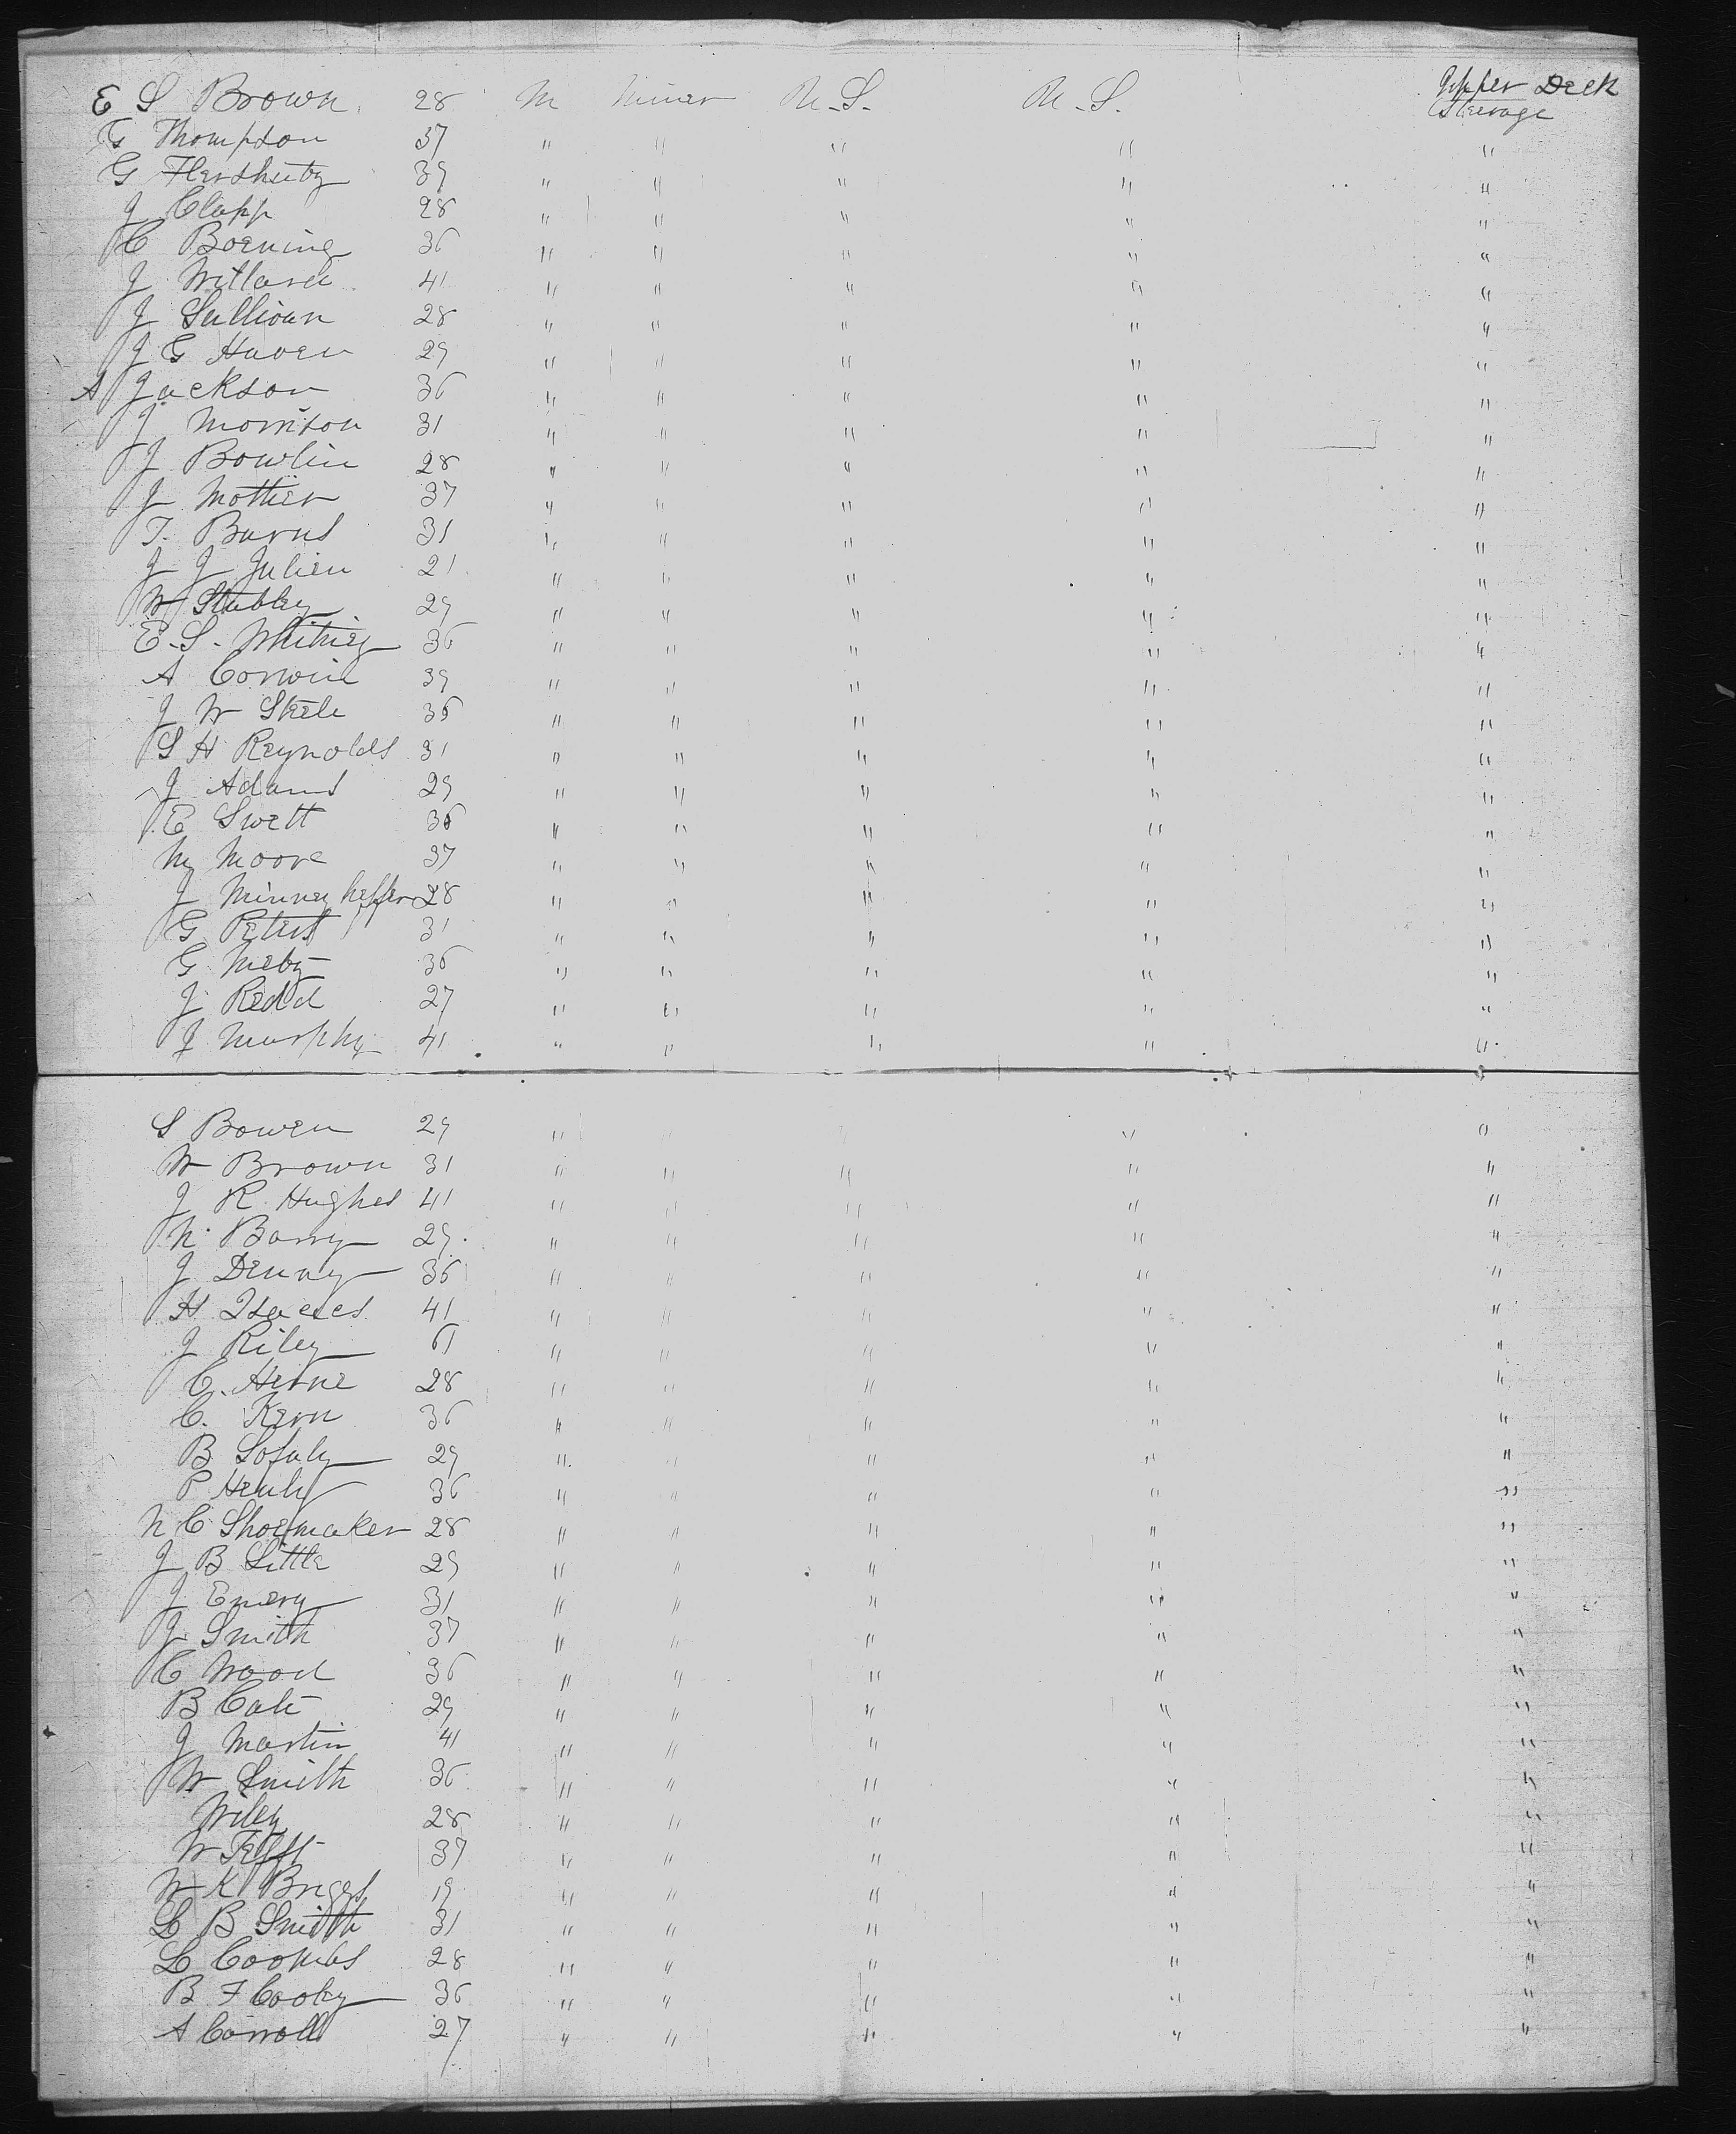 E S Brown 28 M Miner U.S. U.S. Upper Deck Steerage
G Thompson 37 " " " " "
G 39 " " " " "
J Clapp 28 " " " " "
C Boening 36 " " " " "
J Willard 41 " " " " "
J Sullivan 28 " " " " "
J G Haven 29 " " " " "
A Jackson 36 " " " " "
J Morrison 31 " " " " "
J Bowlin 28 " " " " "
J Mother 37 " " " " "
T. Burns 31 " " " " "
J J Julien 21 " " " " "
W Stubley 29 " " " " "
E. S. Whitney 36 " " " " "
A Corwin 39 " " " " "
J W Steele 36 " " " " "
S H Reynolds 31 " " " " "
J Adams 29 " " " " "
E Swett 36 " " " " "
M Moore 37 " " " " "
J 28 " " " " "
G Peters 31 " " " " "
G 36 " " " " "
J Redd 27 " " " " "
J Murphy 41 " " " " "
S Bowen 29 " " "
W Brown 31 " " " " "
J R Hughes 41 " " " " "
N. Barry 29 " " " " "
J Denny 36 " " " " "
H Isaacs 41 " " " " "
J Riley 61 " " " " "
C. Herne 28 " " " " "
C. Kern 36 " " " " "
B 29 " " " " "
P Henly 36 " " " " "
N C Shoemaker 28 " " " " "
J B Little 29 " " " " "
J Emery 31 " " " " "
J Smith 37 " " " " "
C Wood 36 " " " " "
B Cate 29 " " " " "
J Martin 41 " " " " "
W Smith 36 " " " " "
Wiley 28 " " " " "
W Tefft 37 " " " " "
W K Briggs 19 " " " " "
L B Smith 31 " " " " "
L Coombs 28 " " " " "
B F Cooley 36 " " " " "
A Carroll 27 " " " " "